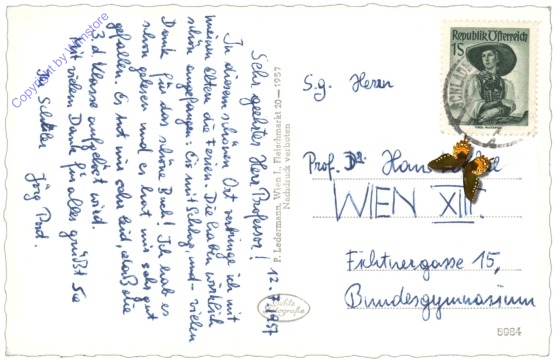 12.7.1957
Sehr geehrter Herr Professor!
In diesem schönen Ort verbringe ich mit
meinen Eltern die Ferien. Die haben wirklich
schön angefangen: Eis mit Schlag und - vielen
Dank für das schöne Buch! Ich hab es
schon gelesen und es hat mir sehr gut
gefallen. Es tut mir sehr leid, daß die
3.d. Klasse aufgelöst wird.
Mit vielen Dank für alles grüßt Sie
Ihr Schüler
Jörg
P. Ledermann, Wien I., Fleischmarkt 20—1957
Nachdruck verboten
Echte
Fotografie
Republik Österreich
1S
S.g. Herrn
Prof. Dr. Hans
WIEN XIII.
Fichtnergasse 15,
Bundesgymnasium
5984
Copyright by